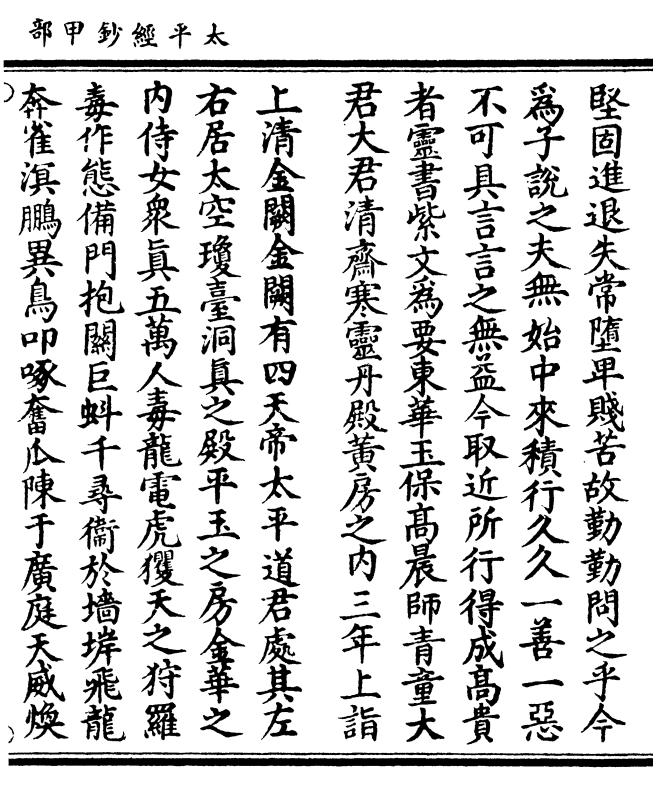 太平經鈔甲部
堅固進退失常墮卑賤苦故勤勤問之乎今
爲子說之夫無始中來積行久久一善一惡
不可具言言之無益今取近所行得成高貴
者靈書紫文爲要東華玉保高晨師青童大
君大君清齋寒靈丹殿黃房之内三年上詣
上清金闕金闕有四天帝太平道君處其左
右居太空瓊臺洞真之殿平玉之房金華之
内侍女衆真五萬人毒龍電虎玃天之狩羅
毒作態備門抱關巨蚪千尋衞於墻垾飛龍
奔雀溟鵬異鳥叩啄奮爪陳于廣庭天威煥